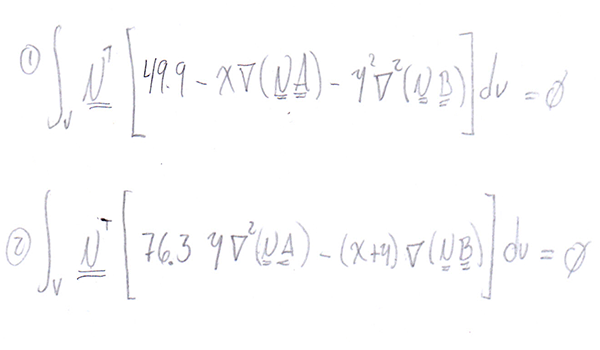 ① ∫_V N^T [49.9 - x∇(NA) - y²∇²(NB)] dv = ∅
② ∫_V N^T [76.3 y∇²(NA) - (x+y)∇(NB)] dv = ∅